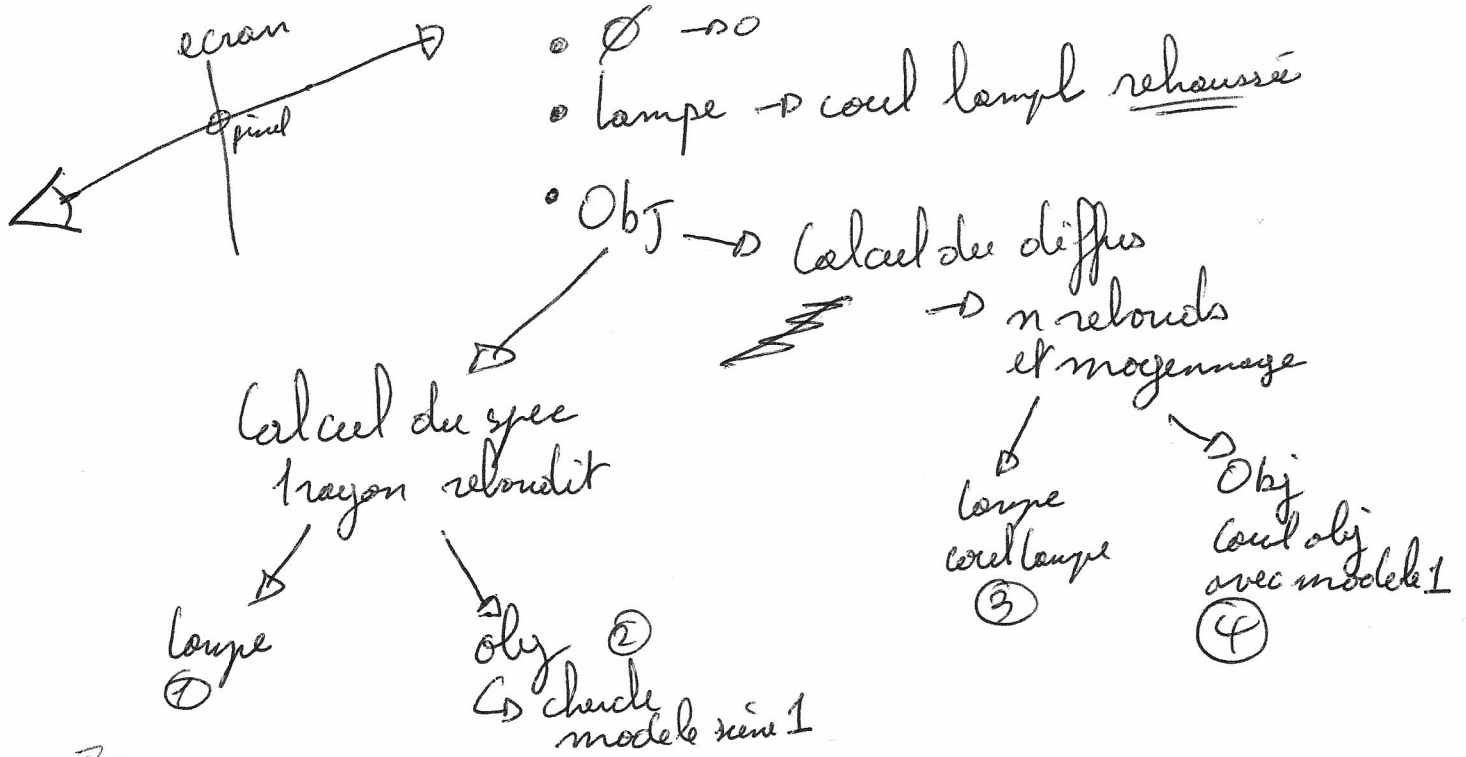 ecran
pixel
• Ø → 0
• lampe → coul lampe rehaussée
• Obj → Calcul du diffus
→ n rebonds
et moyennage
Calcul du spec
1 rayon rebondit
lampe
①
obj ②
↳ cherche
modele scène 1
lampe
coul lampe
③
Obj
coul obj
avec modele 1
④